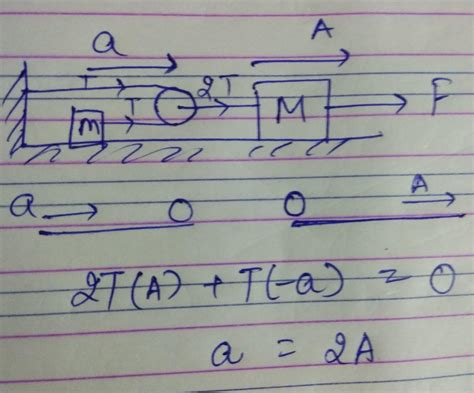 a A
T 2T
m T M F
a A
2T(A) + T(-a) = 0
a = 2A